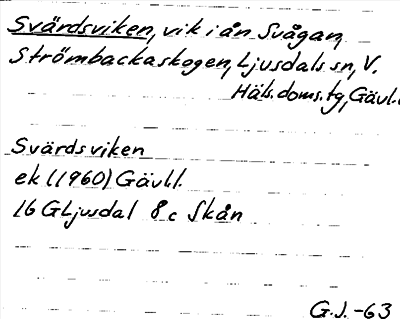 Svärdsviken, vik i ån Svågan,
Strömbackaskogen, Ljusdals sn, V.
Häls. doms. tg, Gävl.
Svärdsviken
ek (1960) Gävl.l.
16 G Ljusdal 8 c Skån
G.J. -63